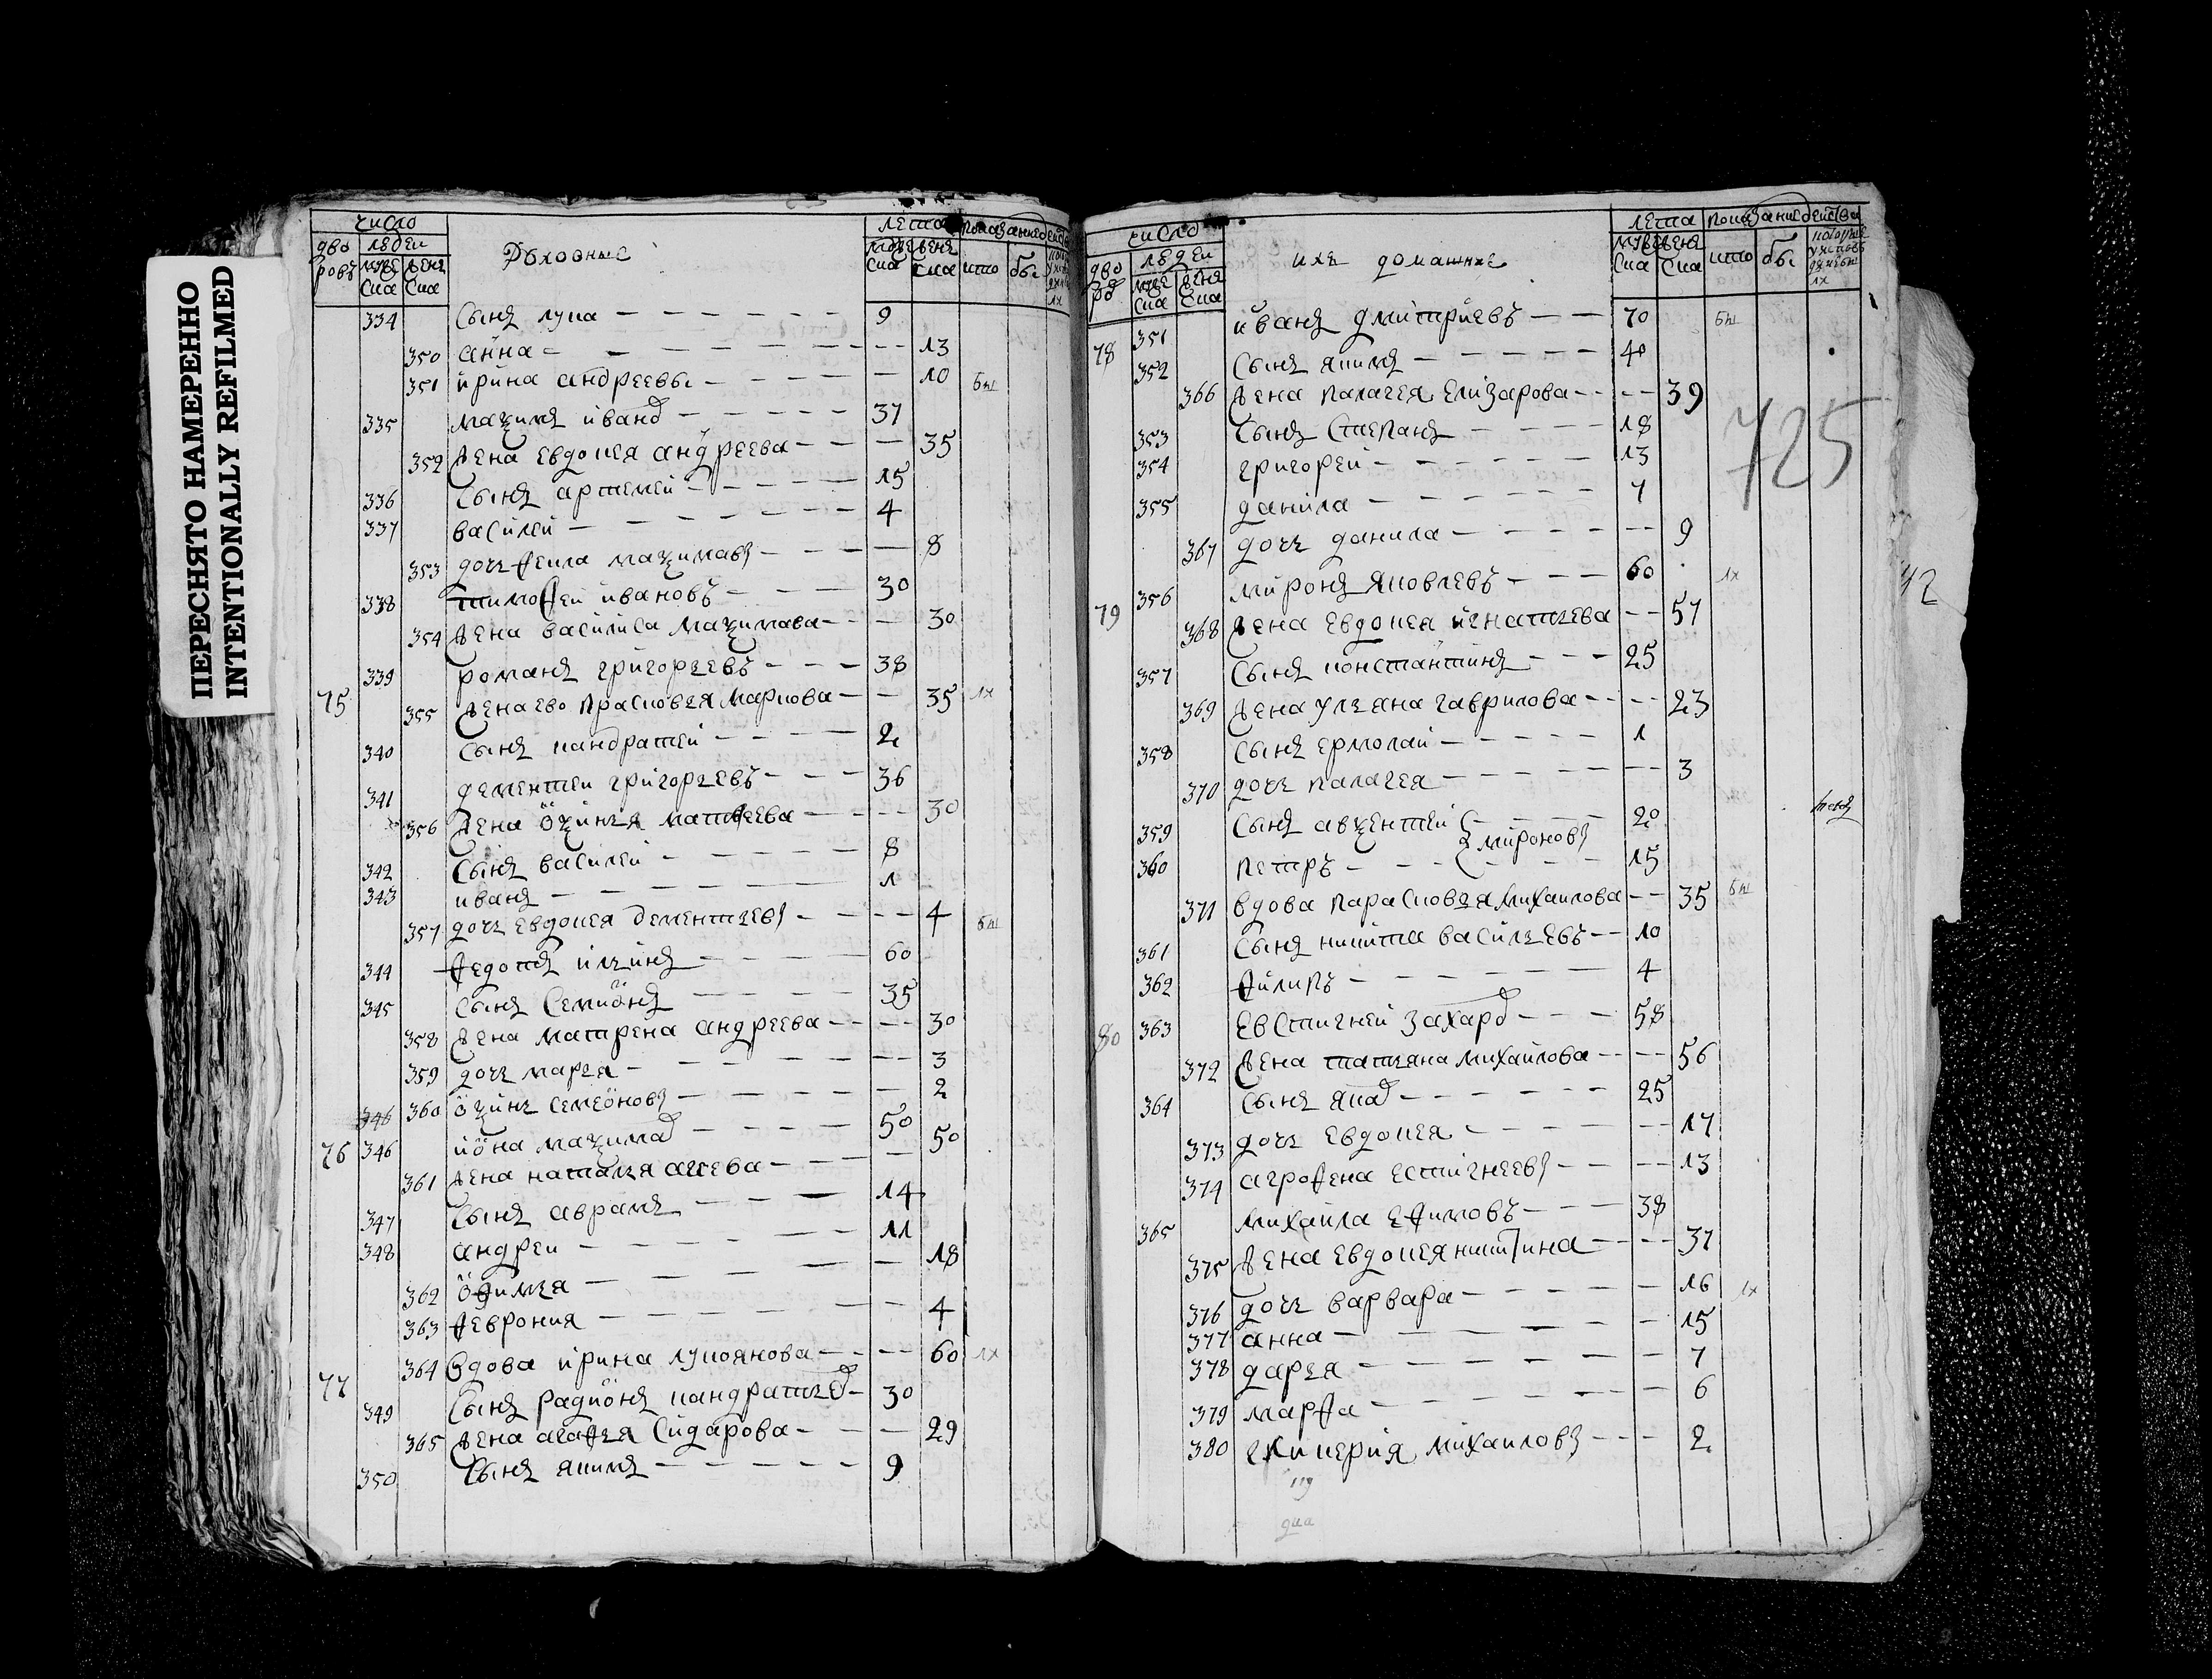 ПЕРЕСНЯТО НАМЕРЕННО
INTENTIONALLY REFILMED
число
лета показание действа
дво людеи Духовные муже жене
ровъ муже жене ска ска кто бы
ска ска
334 сынъ лука 9
350 анна 13
351 ирина андреевы 10 бы
335 мазимъ иванов 37
352 жена евдокея андреева 35
336 сынъ артемеи 15
337 василеи 4
353 дочь ѳекла мазимав 8
338 тимоѳеи ивановъ 30
354 жена василиса мазимава 30
339 романъ григорьевъ 38
75 355 жена ево прасковья маркова 35 их
340 сынъ кандратеи 2
341 дементеи григорьевъ 36
356 жена озинья матвеева 30
342 сынъ василеи 8
343 иванъ 1
357 дочь евдокея дементьев 4 бы
344 ѳедотъ ильинъ 60
345 сынъ семионъ 35
358 жена матрена андреева 30
359 дочь марья 3
346 360 озинь семеонов 2
76 346 иона мазимав 50
361 жена наталья 50
347 сынъ аврамъ 14
348 андреи 11
362 оѳимья 18
363 ѳеврония 4
77 364 вдова ирина лукоянова 60 их
349 сынъ радионъ кандратьев 30
365 жена агаѳья сидарова 29
350 сынъ якимъ 9
число
лета показание действа
дво людеи ихъ домашние муже жене
ро муже жене ска ска кто бы
ска ска
78 351 иванъ дмитриевъ 70 бы
352 сынъ якимъ 40
366 жена палагея елизарова 39
353 сынъ степанъ 18
354 григореи 13
355 данила 7
367 дочь данила 9
79 356 миронъ яковлевъ 60 их
368 жена евдокея игнатьева 57
357 сынъ константинъ 25
369 жена ульяна гаврилова 23
358 сынъ ермолаи 1
370 дочь палагея 3
359 сынъ авзентеи 20
миронов
360 петръ 15
371 вдова парасковья михаилова 35 бы
361 сынъ никита васильевъ 10
362 ѳилипъ 4
80 363 евстигнеи захаров 58
372 жена татьяна михаилова 56
364 сынъ яков 25
373 дочь евдокея 17
374 агроѳена естигнеев 13
365 михаила еѳимовъ 38
375 жена евдокея никитина 37
376 дочь варвара 16 их
377 анна 15
378 дарья 7
379 марѳа 6
380 михаилов 2
725
42